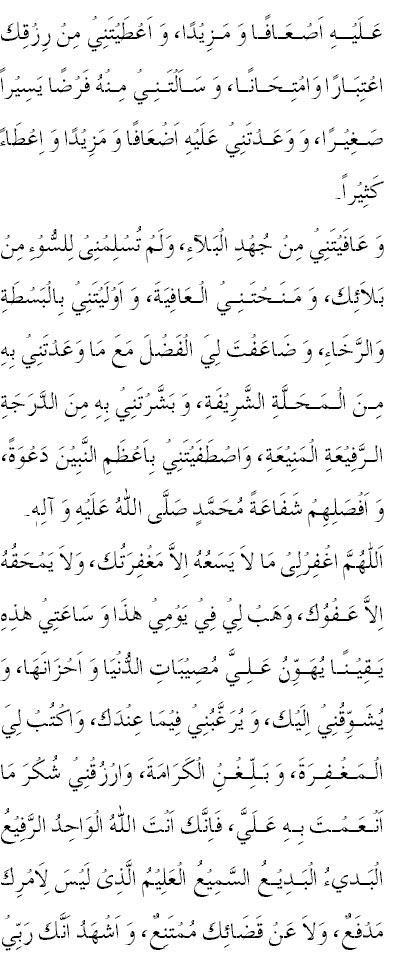 عَلَيْهِ اَضْعَافًا وَ مَزِيْدًا، وَ اَعْطَيْتَنِيْ مِنْ رِزْقِكَ
اعْتِبَارًا وَامْتِحَانًا، وَ سَاَلْتَنِيْ مِنْهُ فَرْضًا يَسِيْراً
صَغِيْرًا، وَ وَعَدْتَنِيْ عَلَيْهِ اَضْعَافًا وَ مَزِيْدًا وَ اِعْطَاءً
كَثِيْراً۔
وَ عَافَيْتَنِيْ مِنْ جُهْدِ الْبَلَآءِ، وَلَمْ تُسْلِمْنِىْ لِلسُّوْءِ مِنْ
بَلَائِكَ، وَ مَنَحْتَنِيْ الْعَافِيَةَ، وَ اَوْلَيْتَنِيْ بِالْبَسْطَةِ
وَالرَّخَاءِ، وَ ضَاعَفْتَ لِيَ الْفَضْلَ مَعَ مَا وَعَدْتَنِيْ بِهِ
مِنَ الْمَحَلَّةِ الشَّرِيْفَةِ، وَ بَشَّرْتَنِيْ بِهِ مِنَ الدَّرَجَةِ
الرَّفِيْعَةِ الْمَنِيْعَةِ، وَاصْطَفَيْتَنِيْ بِاَعْظَمِ النَّبِيْنَ دَعْوَةً،
وَ اَفْضَلِهِمْ شَفَاعَةً مُحَمَّدٍ صَلَّى اللهُ عَلَيْهِ وَ آلِهٖ۔
اَللّٰهُمَّ اغْفِرْلِىْ مَا لَا يَسَعُهُ اِلاَّ مَغْفِرَتُكَ، وَلَا يَمْحَقُهُ
اِلاَّ عَفْوُكَ، وَهَبْ لِيْ فِيْ يَوْمِيْ هٰذَا وَ سَاعَتِيْ هٰذِهِ
يَقِيْنًا يُهَوِّنُ عَلَيَّ مُصِيْبَاتِ الدُّنْيَا وَ اَحْزَانَهَا، وَ
يُشَوِّقُنِيْ اِلَيْكَ، وَ يُرَغِّبُنِيْ فِيْمَا عِنْدَكَ، وَاكْتُبْ لِيَ
الْمَغْفِرَةَ، وَ بَلِّغْنِيْ الْكَرَامَةَ، وَارْزُقْنِيْ شُكْرَ مَا
اَنْعَمْتَ بِهِ عَلَيَّ، فَاِنَّكَ اَنْتَ اللهُ الْوَاحِدُ الرَّفِيْعُ
الْبَدِيءُ الْبَدِيْعُ السَّمِيْعُ الْعَلِيْمُ الَّذِىْ لَيْسَ لِاَمْرِكَ
مَدْفَعٌ، وَلَا عَنْ قَضَائِكَ مُمْتَنِعٌ، وَ اَشْهَدُ اَنَّكَ رَبِّيْ